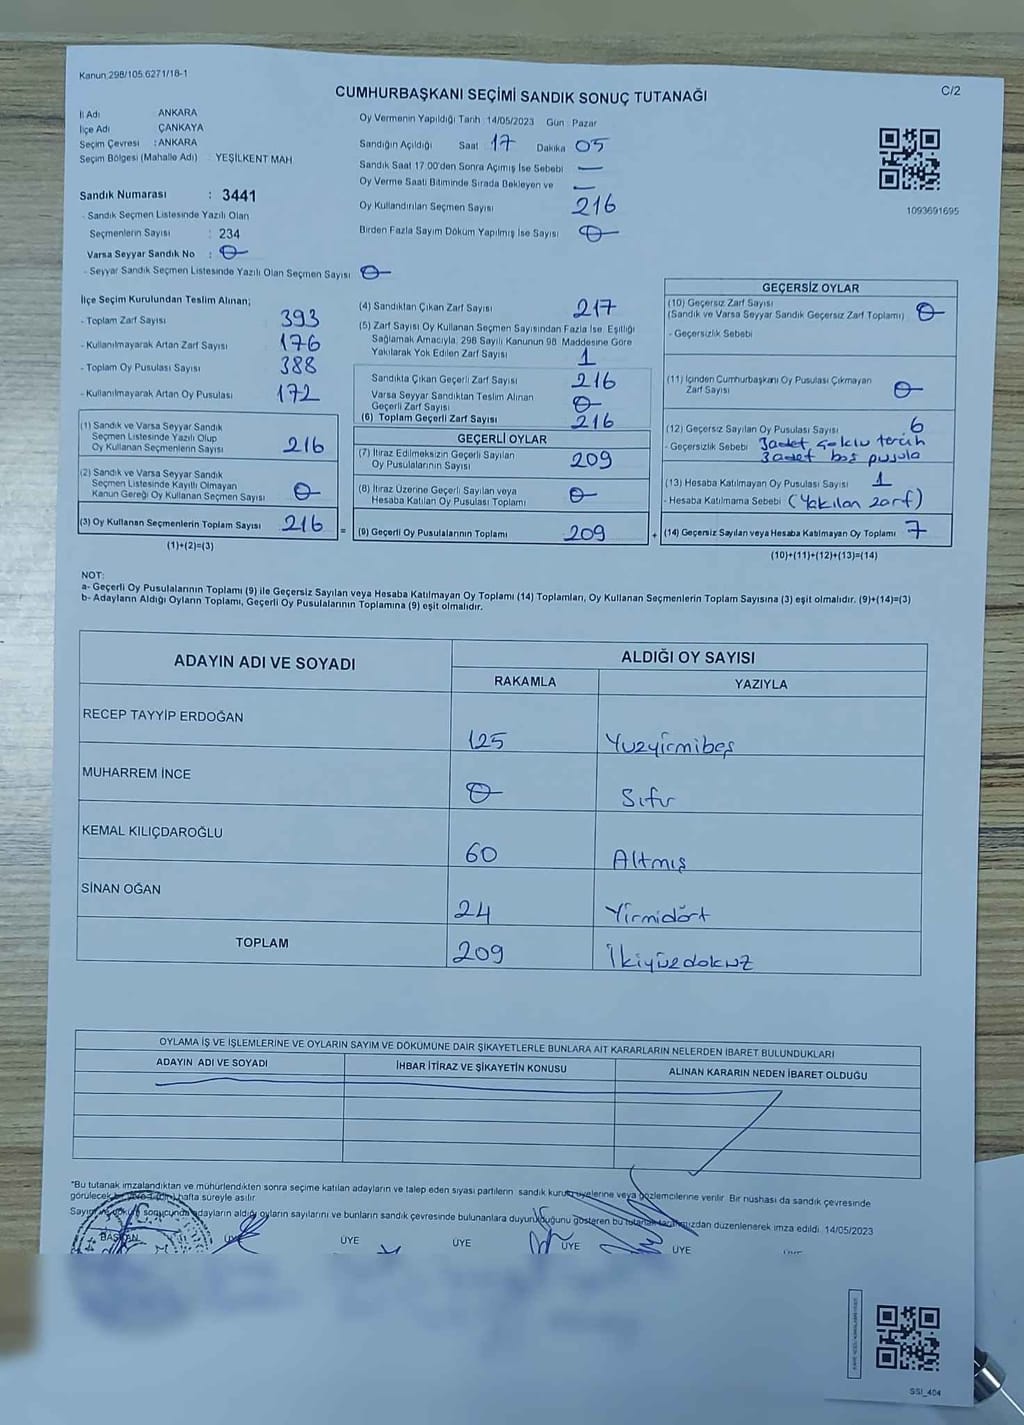 Kanun 298/105 6271/18-1
C/2
CUMHURBAŞKANI SEÇİMİ SANDIK SONUÇ TUTANAĞI
İl Adı ANKARA
İlçe Adı ÇANKAYA
Seçim Çevresi : ANKARA
Seçim Bölgesi (Mahalle Adı) : YEŞİLKENT MAH
Sandık Numarası : 3441
- Sandık Seçmen Listesinde Yazılı Olan
Seçmenlerin Sayısı : 234
Varsa Seyyar Sandık No : 0
- Seyyar Sandık Seçmen Listesinde Yazılı Olan Seçmen Sayısı 0
Oy Vermenin Yapıldığı Tarih : 14/05/2023 Gün : Pazar
Sandığın Açıldığı Saat 17 Dakika 05
Sandık Saat 17.00'den Sonra Açımış İse Sebebi —
Oy Verme Saati Bitiminde Sırada Bekleyen ve —
Oy Kullandırılan Seçmen Sayısı 216
Birden Fazla Sayım Döküm Yapılmış İse Sayısı 0
1093691695
İlçe Seçim Kurulundan Teslim Alınan;
- Toplam Zarf Sayısı 393
- Kullanılmayarak Artan Zarf Sayısı 176
- Toplam Oy Pusulası Sayısı 388
- Kullanılmayarak Artan Oy Pusulası 172
(1) Sandık ve Varsa Seyyar Sandık
Seçmen Listesinde Yazılı Olup
Oy Kullanan Seçmenlerin Sayısı 216
(2) Sandık ve Varsa Seyyar Sandık
Seçmen Listesinde Kayıtlı Olmayan
Kanun Gereği Oy Kullanan Seçmen Sayısı 0
(3) Oy Kullanan Seçmenlerin Toplam Sayısı 216
(1)+(2)=(3)
=
(4) Sandıktan Çıkan Zarf Sayısı 217
(5) Zarf Sayısı Oy Kullanan Seçmen Sayısından Fazla İse, Eşitliği
Sağlamak Amacıyla, 298 Sayılı Kanunun 98. Maddesine Göre
Yakılarak Yok Edilen Zarf Sayısı 1
Sandıkta Çıkan Geçerli Zarf Sayısı 216
Varsa Seyyar Sandıktan Teslim Alınan
Geçerli Zarf Sayısı 0
(6) Toplam Geçerli Zarf Sayısı 216
GEÇERLİ OYLAR
(7) İtiraz Edilmeksizin Geçerli Sayılan
Oy Pusulalarının Sayısı 209
(8) İtiraz Üzerine Geçerli Sayılan veya
Hesaba Katılan Oy Pusulası Toplamı 0
(9) Geçerli Oy Pusulalarının Toplamı 209
+
GEÇERSİZ OYLAR
(10) Geçersiz Zarf Sayısı
(Sandık ve Varsa Seyyar Sandık Geçersiz Zarf Toplamı) 0
- Geçersizlik Sebebi
(11) İçinden Cumhurbaşkanı Oy Pusulası Çıkmayan
Zarf Sayısı 0
(12) Geçersiz Sayılan Oy Pusulası Sayısı 6
- Geçersizlik Sebebi 3 adet çoklu tercih
3 adet boş pusula
(13) Hesaba Katılmayan Oy Pusulası Sayısı 1
- Hesaba Katılmama Sebebi (Yakılan zarf)
(14) Geçersiz Sayılan veya Hesaba Katılmayan Oy Toplamı 7
(10)+(11)+(12)+(13)=(14)
NOT:
a- Geçerli Oy Pusulalarının Toplamı (9) ile Geçersiz Sayılan veya Hesaba Katılmayan Oy Toplamı (14) Toplamları, Oy Kullanan Seçmenlerin Toplam Sayısına (3) eşit olmalıdır. (9)+(14)=(3)
b- Adayların Aldığı Oyların Toplamı, Geçerli Oy Pusulalarının Toplamına (9) eşit olmalıdır.
ADAYIN ADI VE SOYADI ALDIĞI OY SAYISI
RAKAMLA YAZIYLA
RECEP TAYYİP ERDOĞAN 125 Yüzyirmibeş
MUHARREM İNCE 0 Sıfır
KEMAL KILIÇDAROĞLU 60 Altmış
SİNAN OĞAN 24 Yirmidört
TOPLAM 209 İkiyüzdokuz
OYLAMA İŞ VE İŞLEMLERİNE VE OYLARIN SAYIM VE DÖKÜMÜNE DAİR ŞİKAYETLERLE BUNLARA AİT KARARLARIN NELERDEN İBARET BULUNDUKLARI
ADAYIN ADI VE SOYADI İHBAR İTİRAZ VE ŞİKAYETİN KONUSU ALINAN KARARIN NEDEN İBARET OLDUĞU
"Bu tutanak imzalandıktan ve mühürlendikten sonra seçime katılan adayların ve talep eden siyasi partilerin sandık kurulu üyelerine veya gözlemcilerine verilir. Bir nüshası da sandık çevresinde
görülecek bir hafta süreyle asılır
Sayım sonucunda adayların aldığı oyların sayılarını ve bunların sandık çevresinde bulunanlara duyurulduğunu gösteren bu tutanak tarafımızdan düzenlenerek imza edildi. 14/05/2023
BAŞKAN ÜYE ÜYE ÜYE ÜYE ÜYE
SSI_404